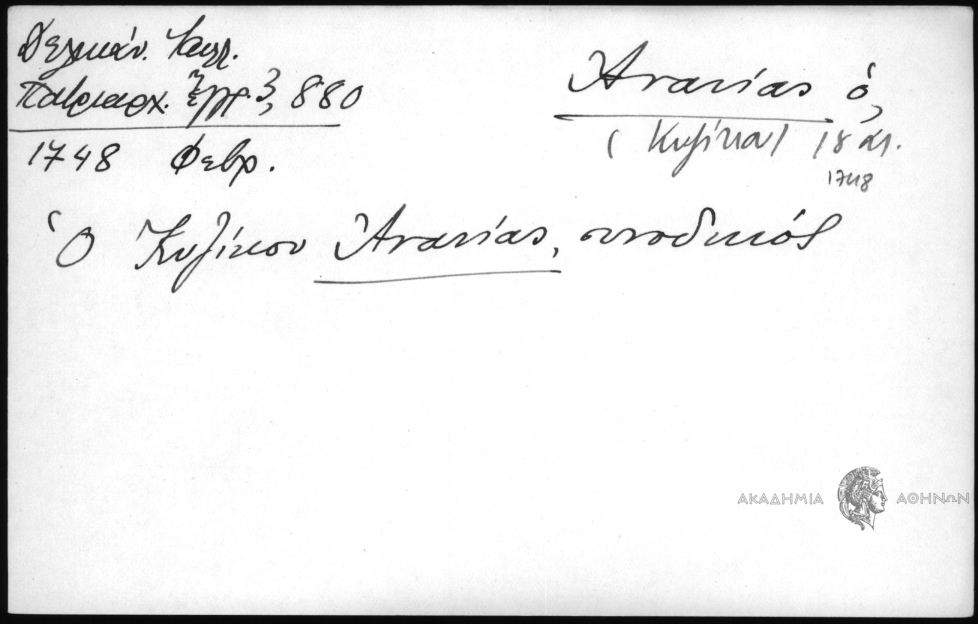 Δελικάν. Καλλ.
Πατριαρχ. Ἔγγρ. 3, 880
1748 Φεβρ.
Ἀνανίας ὁ,
(Κυζίκου) 18 αι.
1748
Ὁ Κυζίκου Ἀνανίας, συνοδικός
ΑΚΑΔΗΜΙΑ ΑΘΗΝΩΝ